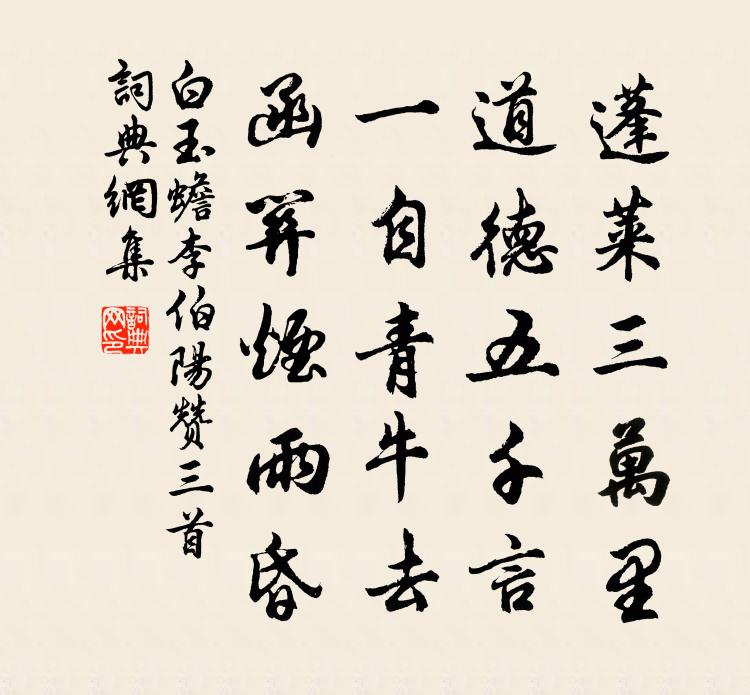 蓬萊三萬里
道德五千言
一自青牛去
函關煙雨昏
白玉蟾李伯陽贊三首
詞典網集
詞典网印